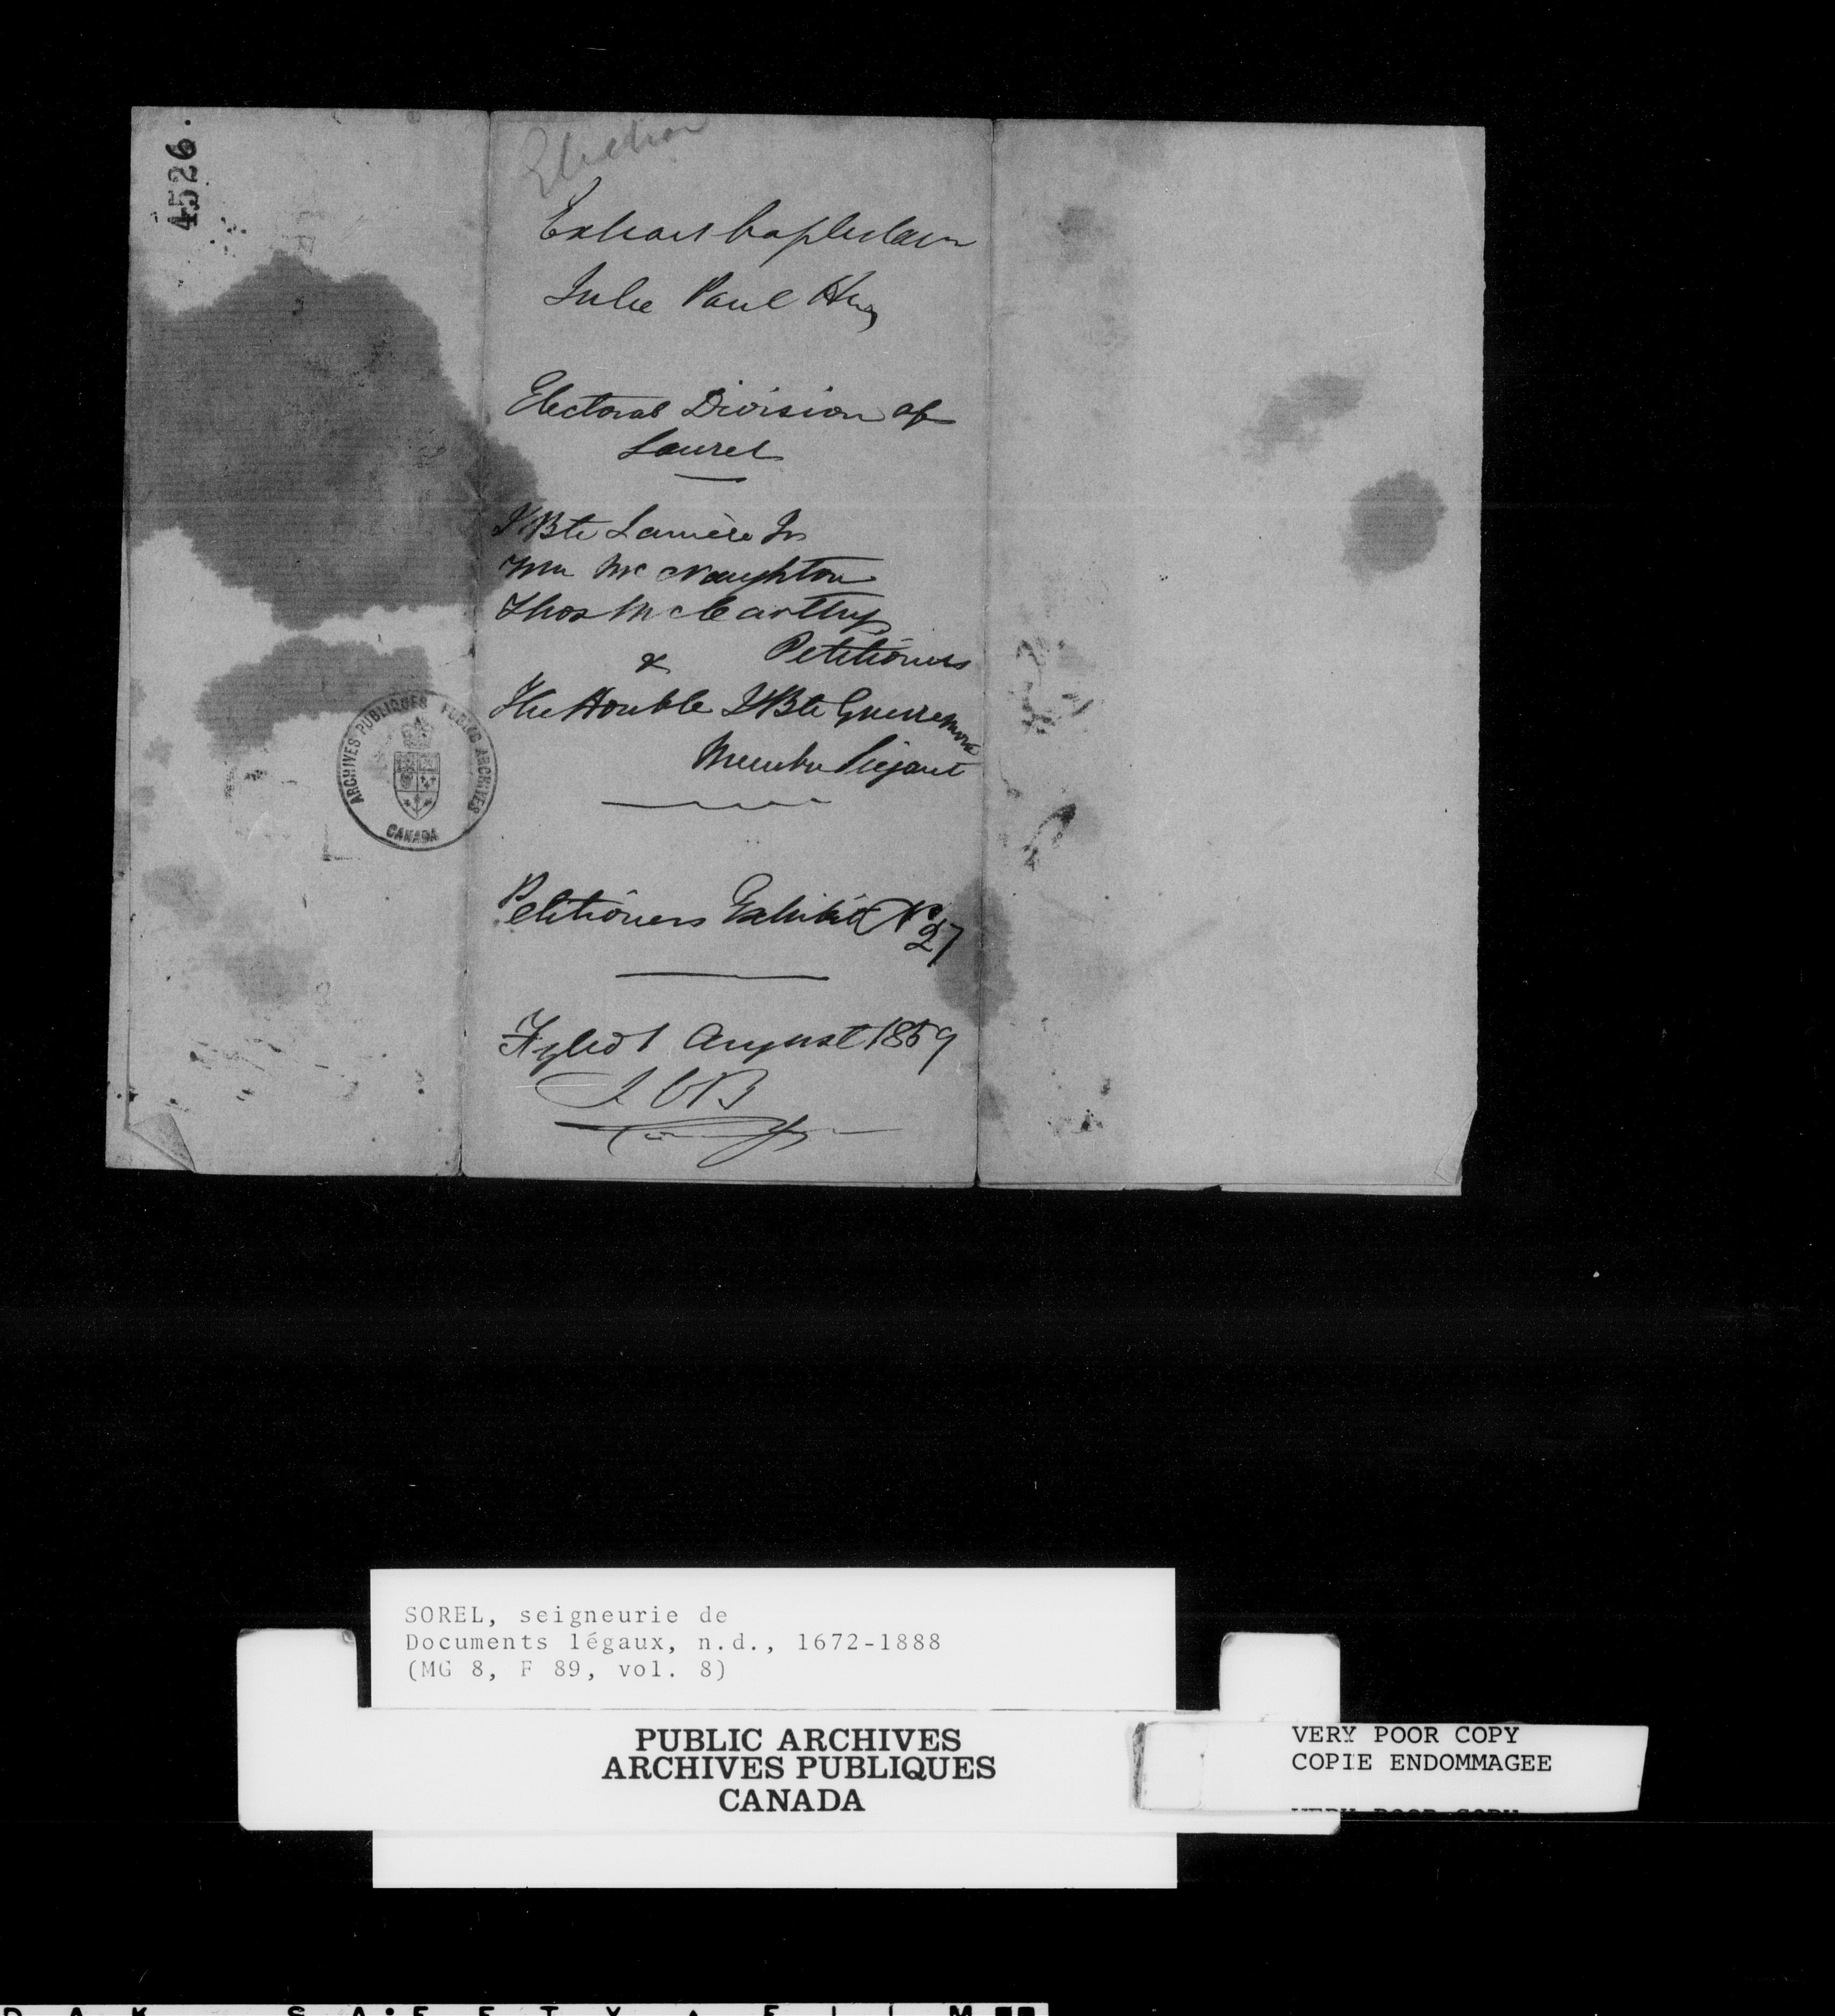 4526.
Election
Extrait baptistaire
Julie Paul Hus
Electoral Division of
Saurel
J Bte Lamère Jr
Wm McNaughton
Thos McCarthy
Petitioners
&
The Honble J Bte Guèvremont
Membre Siégeant
ARCHIVES PUBLIQUES PUBLIC ARCHIVES
CANADA
Petitioners Exhibit No 27
Fyled 1 August 1859
SOREL, seigneurie de
Documents légaux, n.d., 1672-1888
(MG 8, F 89, vol. 8)
PUBLIC ARCHIVES
ARCHIVES PUBLIQUES
CANADA
VERY POOR COPY
COPIE ENDOMMAGEE
VERY POOR COPY